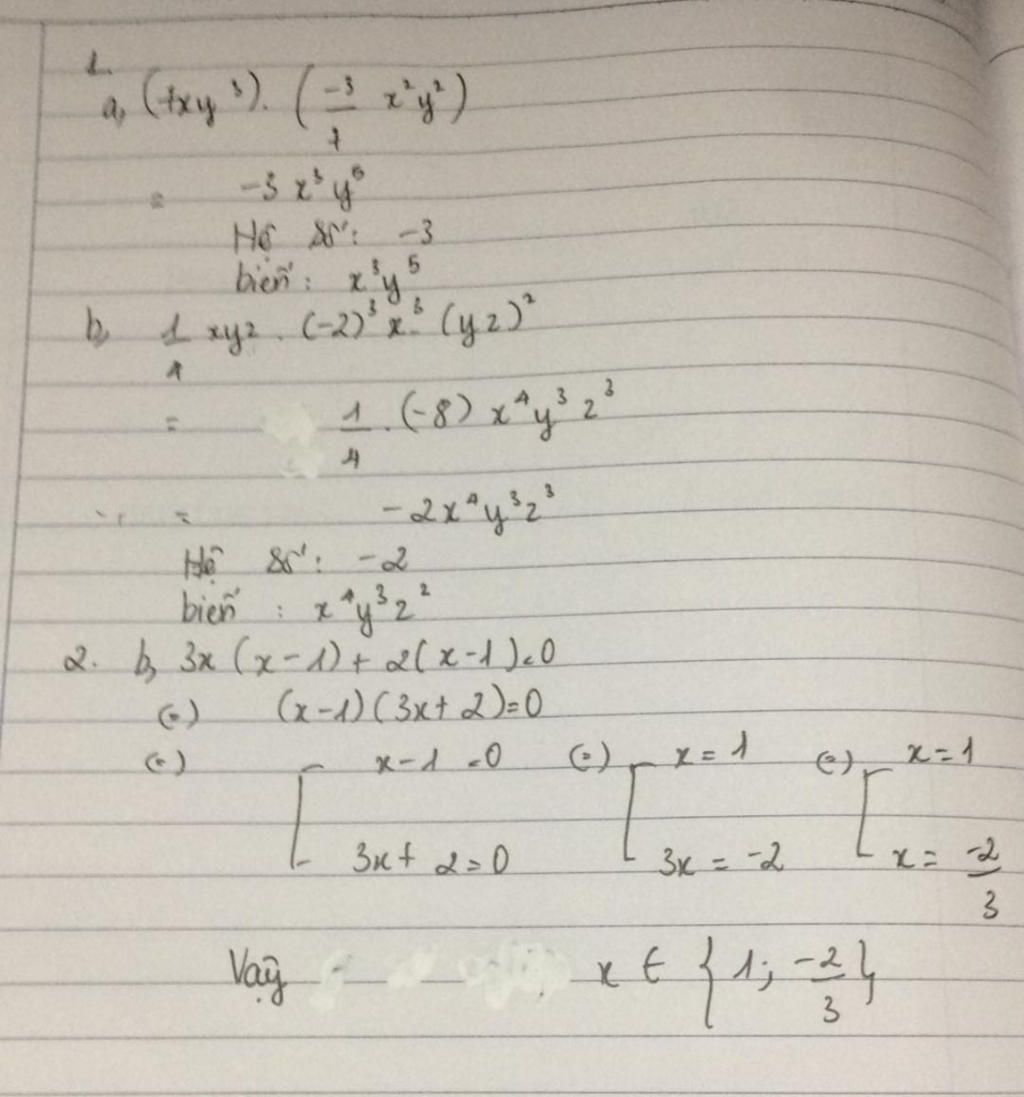 1.
a, (7xy³). (-3/7 x²y²)
= -3 x³y⁵
Hệ số: -3
biến: x³y⁵
b, 1/4 xyz . (-2)³ x³ (yz)²
= 1/4 . (-8) x⁴y³z³
= -2x⁴y³z³
Hệ số: -2
biến : x⁴y³z²
2. b, 3x (x-1) + 2(x-1)=0
(=) (x-1)(3x+2)=0
(=) [ x-1 =0 (=) [ x=1 (=) [ x=1
3x+ 2=0 3x = -2 x= -2/3
Vậy x ∈ {1; -2/3}